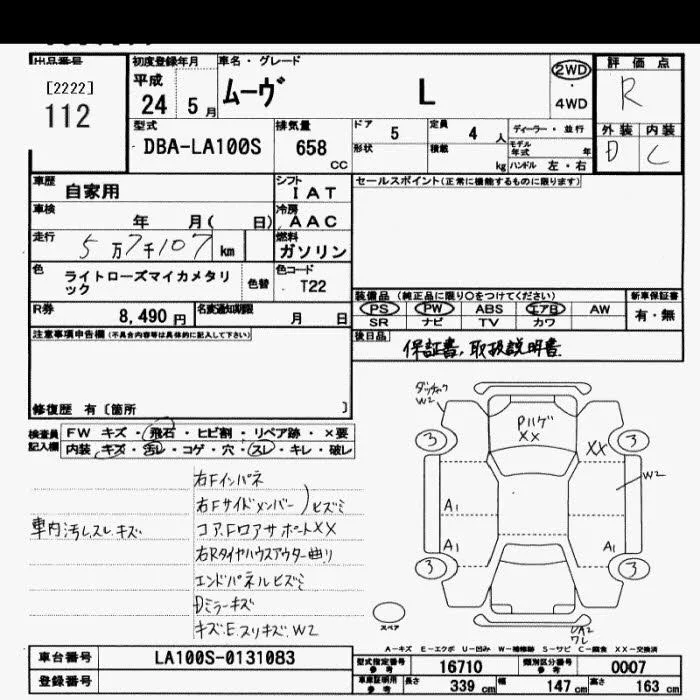 出品番号
[2222]
112
初度登録年月
平成
24 5 月
車名・グレード
ムーヴ L
2WD
・
4WD
評価点
R
外装 内装
D C
型式
DBA-LA100S
排気量
658 CC
ドア 5
定員 4 人
形状
積載 kg
ディーラー・並行
モデル年式 年
ハンドル 左・右
車歴 自家用
シフト IAT
セールスポイント(正常に機能するものに限ります)
車検 年 月( 日)
冷房 AAC
走行 5万7千107 km
燃料 ガソリン
色 ライトローズマイカメタリック
色替
色コード T22
装備品 (純正品に限り〇をつけてください)
新車保証書
有・無
PS PW ABS エアB AW
SR ナビ TV カワ
R券 8,490 円
名変通知期限 月 日
後日品 保証書,取扱説明書
注意事項申告欄(不具合内容等は具体的に記入して下さい)
修復歴 有〔箇所 〕
検査員記入欄
FW キズ・飛石・ヒビ割・リペア跡・×要
内装・キズ・汚レ・コゲ・穴・スレ・キレ・破レ
車内汚レ.スレ.キズ
右Fインパネ
右Fサイドメンバー)ヒズミ
コア.Fロアサポート××
右Rタイヤハウスアウター曲り
エンドパネルヒズミ
Dミラーキズ
キズ.E.スリキズ.W2
W2
Pハゲ
XX
XX
3
3
W2
A1
A1
A1
3
3
スペア
UA2
ワレ
A-キズ E-エクボ U-凹み W-補修跡 S-サビ C-腐食 XX-交換済
車台番号 LA100S-0131083
登録番号
型式指定番号参考 16710
類別区分番号参考 0007
車庫証明用参考 長さ 339 cm 幅 147 cm 高さ 163 cm